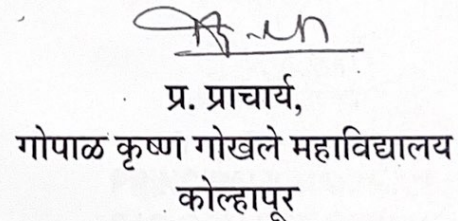 प्र. प्राचार्य,
गोपाळ कृष्ण गोखले महाविद्यालय
कोल्हापूर